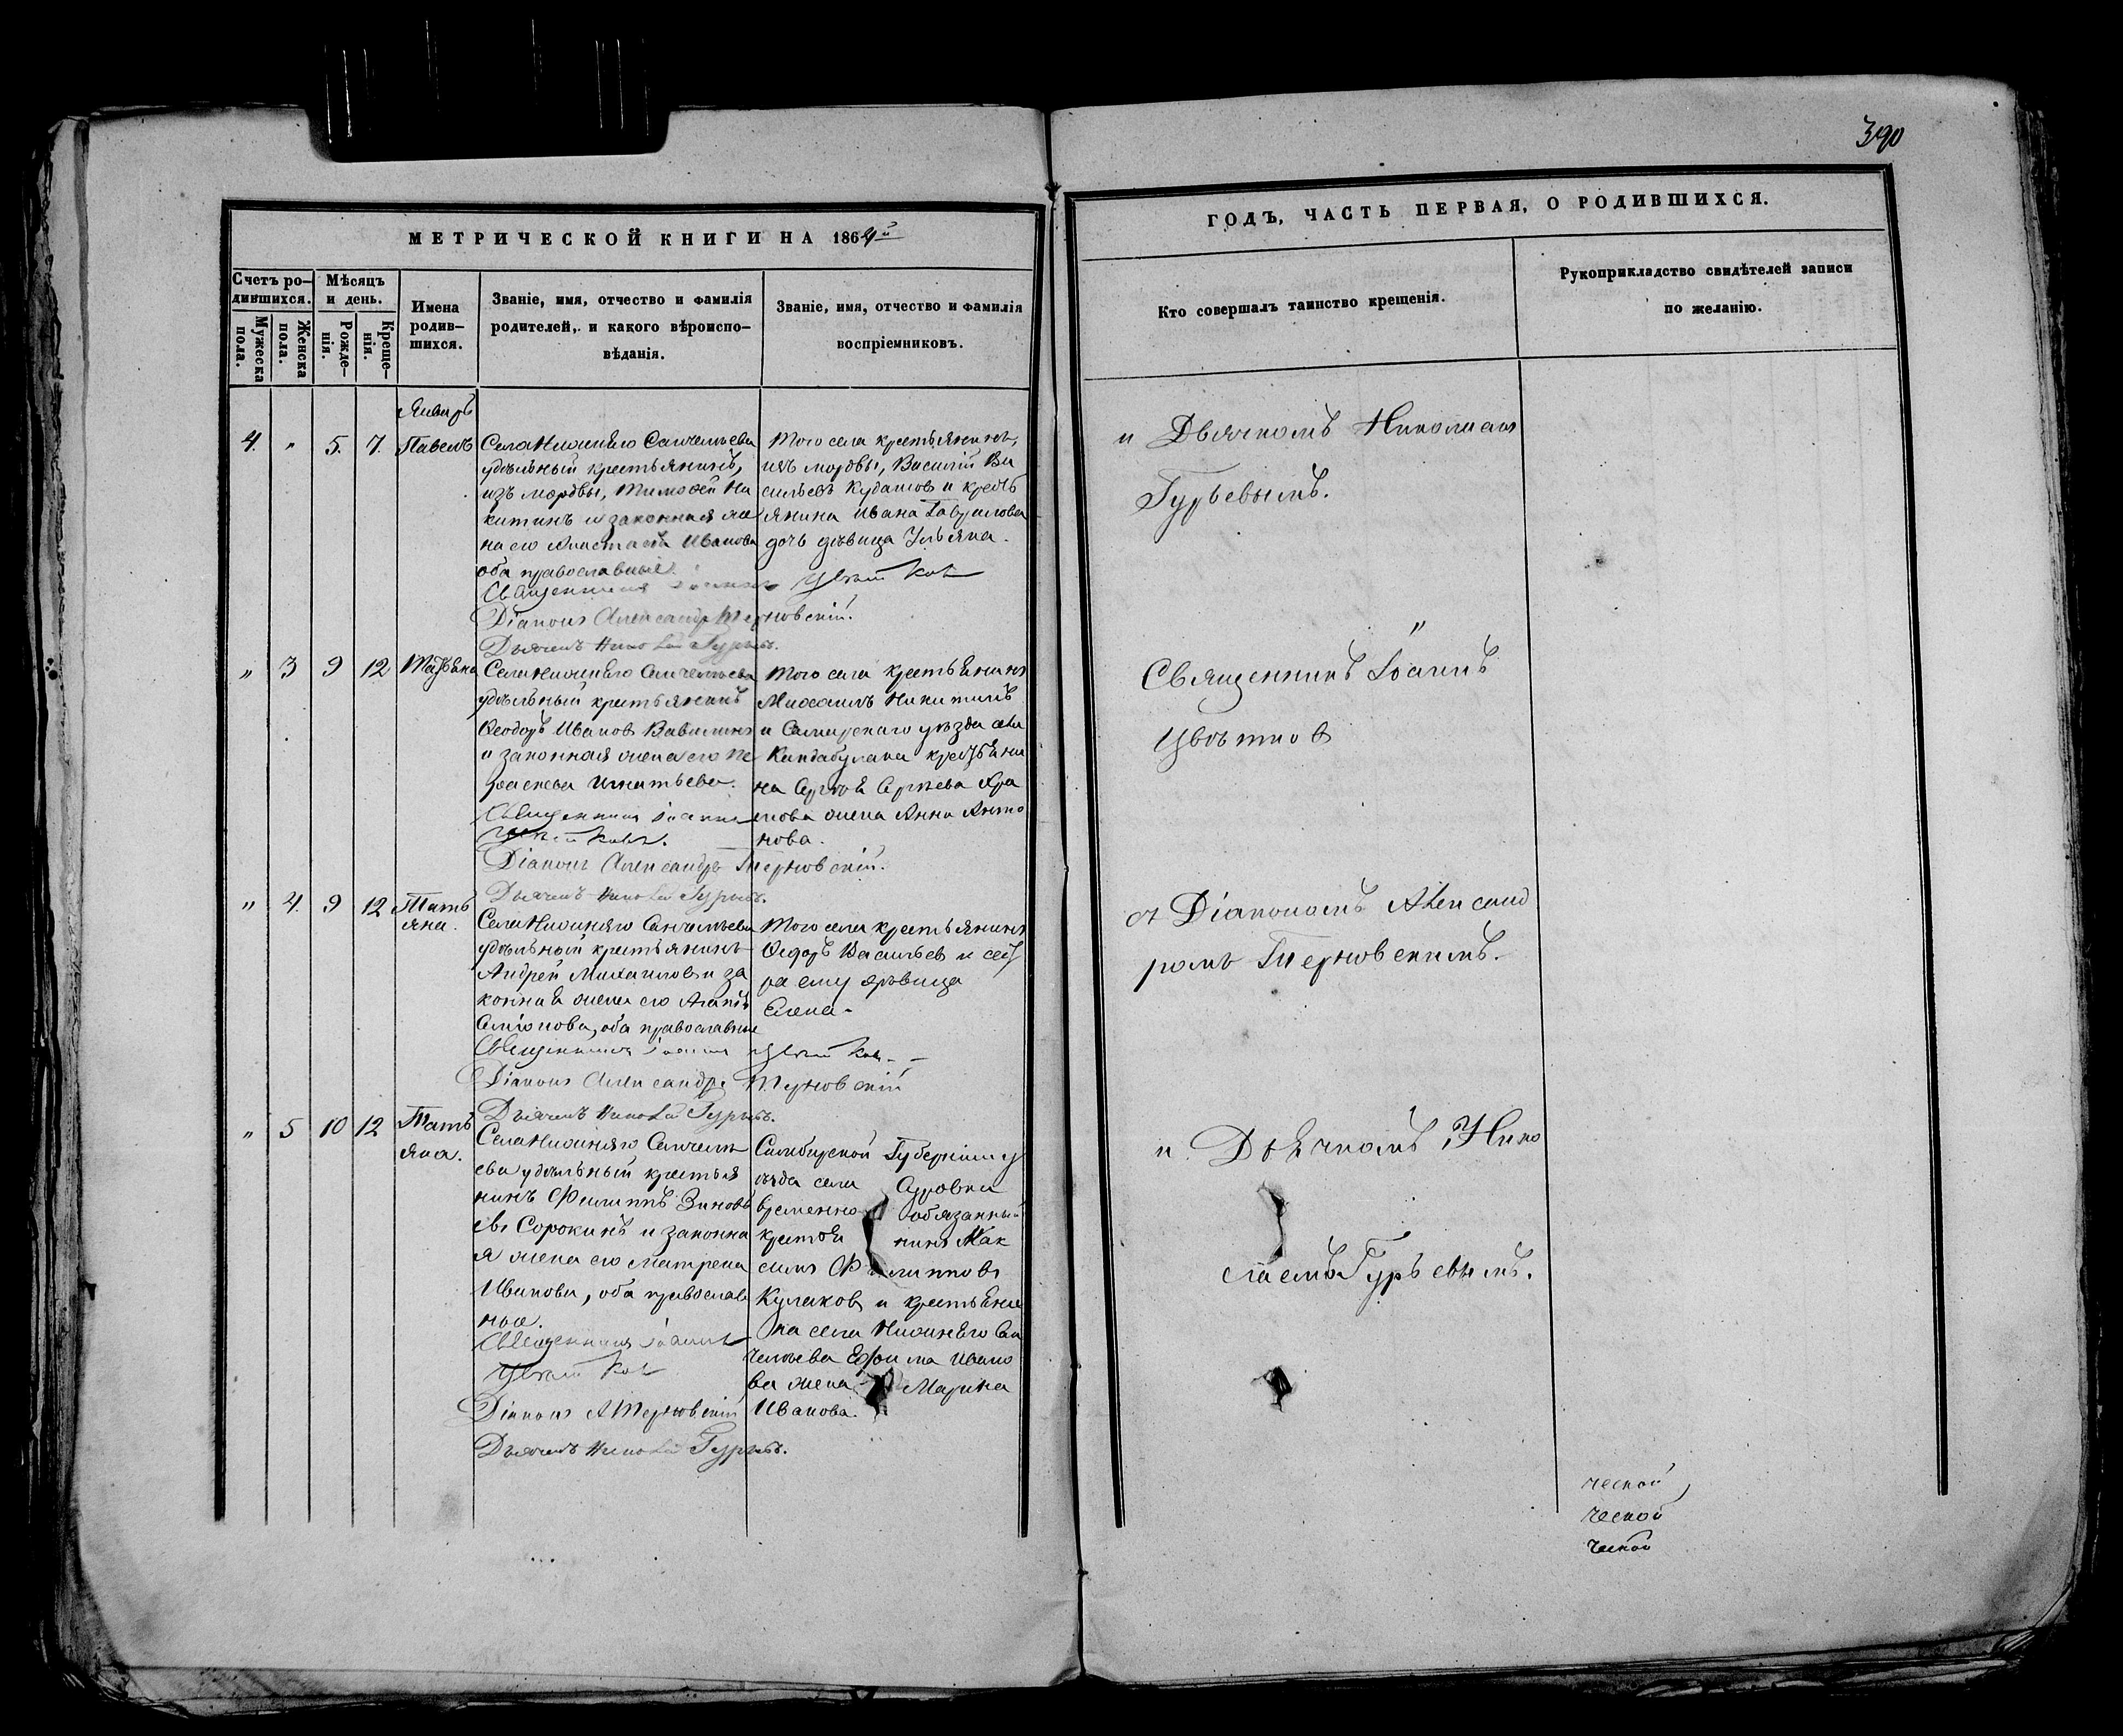 390
МЕТРИЧЕСКОЙ КНИГИ НА 1864й
ГОДЪ, ЧАСТЬ ПЕРВАЯ, О РОДИВШИХСЯ.
Счетъ ро-
дившихся.
Мужеска
пола.
Женска
пола.
Мѣсяцъ
и день.
Рожде-
нія.
Креще-
нія.
Имена
родив-
шихся.
Званіе, имя, отчество и фамилія
родителей, и какого вѣроиспо-
вѣданія.
Званіе, имя, отчество и фамилія
воспріемниковъ.
Кто совершалъ таинство крещенія.
Рукоприкладство свидѣтелей записи
по желанію.
Январь
4. " 5. 7. Павелъ
Села Нижняго Санчелѣева
удѣльный крестьянинъ,
изъ мордвы, Тимофей Ни
китинъ и законная же
на его Анастасія Иванова
оба православные.
Священникъ Іоаннъ Цвѣтковъ
Діаконъ Александръ Терновскій.
Дьячекъ Николай Гурьевъ.
Того села крестьянинъ,
изъ мордвы, Василій Ва
сильевъ Кудашовъ и кресть
янина Ивана Гаврилова
дочь дѣвица Ульяна.
и Дьячкомъ Николаем
Гурьевымъ.
" 3 9 12 Татьяна
Села Нижняго Санчелѣева
удѣльный крестьянинъ
Ѳеодоръ Иванов Вавилинъ
и законная жена его Па
раскева Игнатьева.
Священникъ Іоаннъ
Цвѣтковъ.
Діаконъ Александръ Терновскій.
Дьячекъ Николай Гурьевъ.
Того села крестьянинъ
Михаилъ Никитинъ
и Самарскаго уѣзда села
Кандабулака крестьяни
на Сергѣя Сергѣева
жена Анна Анто
нова.
"
Священникъ Іоаннъ
Цвѣтков
" 4. 9 12 Тать
яна.
Села Нижняго Санчелѣева
удѣльный крестьянинъ
Андрей Михаиловъ и за
конная жена его Агапія
Семіонова, оба православные
Священникъ Іоаннъ Цвѣтковъ
Діаконъ Александръ Терновскій
Дьячекъ Николай Гурьевъ.
Того села крестьянинъ
Ѳедоръ Васильев и сест
ра ему дѣвица
Елена.
съ Діакономъ Александ
ромъ Терновскимъ.
" 5 10 12 Тать
яна.
Села Нижняго Санчелѣ
ева удѣльный крестья
нинъ Филиппъ Зиновь
евъ Сорокинъ и законна
я жена его Матрена
Иванова, оба православ
ные.
Священникъ Іоаннъ
Цвѣтковъ
Діаконъ А Терновскій
Дьячекъ Николай Гурьевъ.
Симбирской Губерніи у
ѣзда села
временно обязанный
крестья нинъ Мак
симъ Филиппов
Кулаковъ и крестьяни
на села Нижняго Сан
челѣева Ефима Ивано
ва жена Марина
Иванова.
и Дьячкомъ Нико
лаемъ Гурьевымъ.
ческой
ческой
ческой